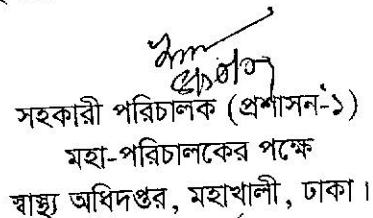 সহকারী পরিচালক (প্রশাসন-১)
মহা-পরিচালকের পক্ষে
স্বাস্থ্য অধিদপ্তর, মহাখালী, ঢাকা।